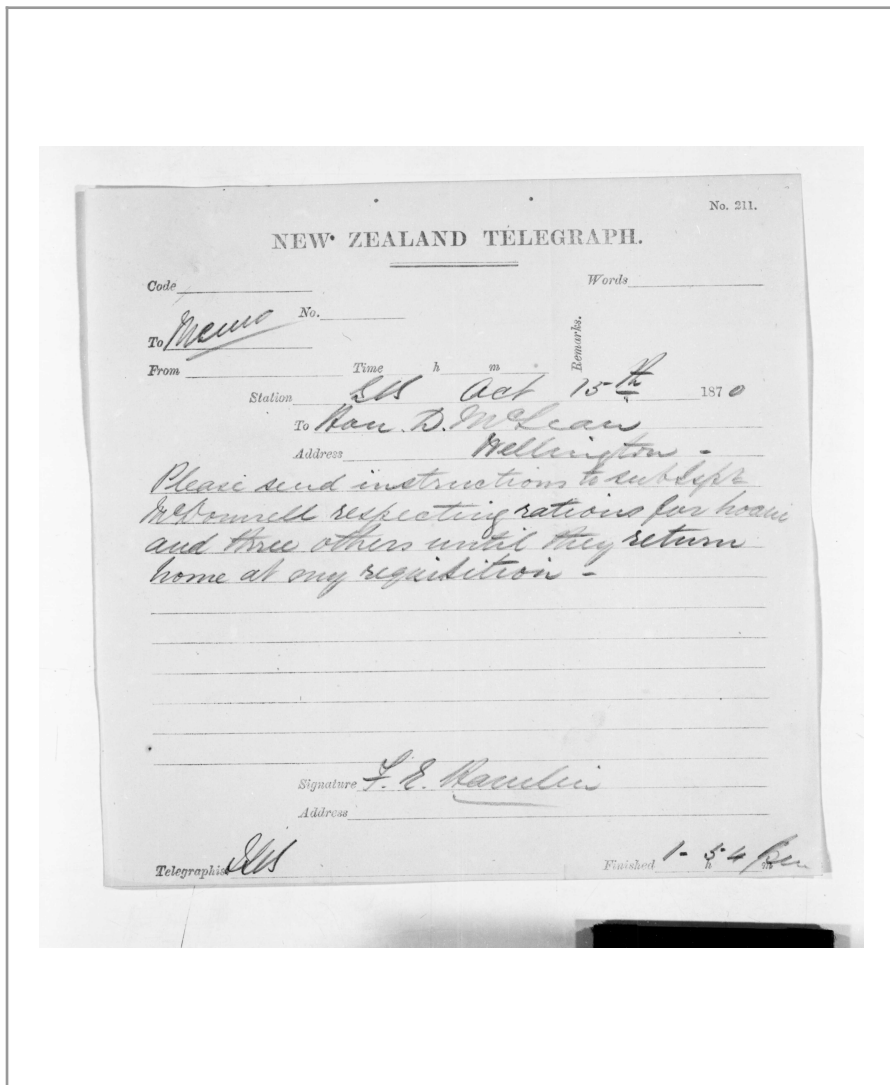 No. 211.
NEW ZEALAND TELEGRAPH.
Code Words
To Memo No.
Remarks.
From Time h m
Station Oct 15th 1870
To Hon. D. McLean
Address Wellington -
Please send instructions to sub Inspt
McDonnell respecting rations for
and three others until they return
home at my requisition -
Signature F. E. Hamlin
Address
Telegraphist
Finished 1 - 54 pm
h m